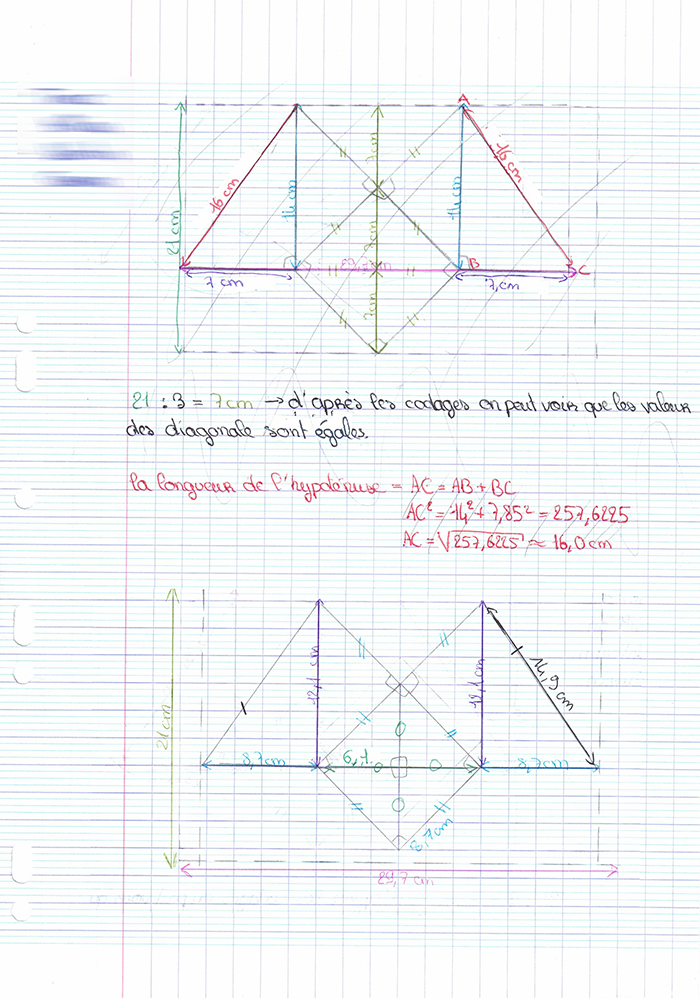 A
21 cm
16 cm
14 cm
7 cm
7 cm
7 cm
14 cm
16 cm
B
C
7 cm
7,cm
21 : 3 = 7 cm → d'après les codages on peut voir que les valeur
des diagonale sont égales.
la longueur de l'hypoténuse = AC = AB + BC
AC² = 14² + 7,85² = 257,6225
AC = √257,6225 ≈ 16,0 cm
21 cm
12,1 cm
12,1 cm
14,9 cm
8,7cm
8,7cm
8,7cm
29,7 cm